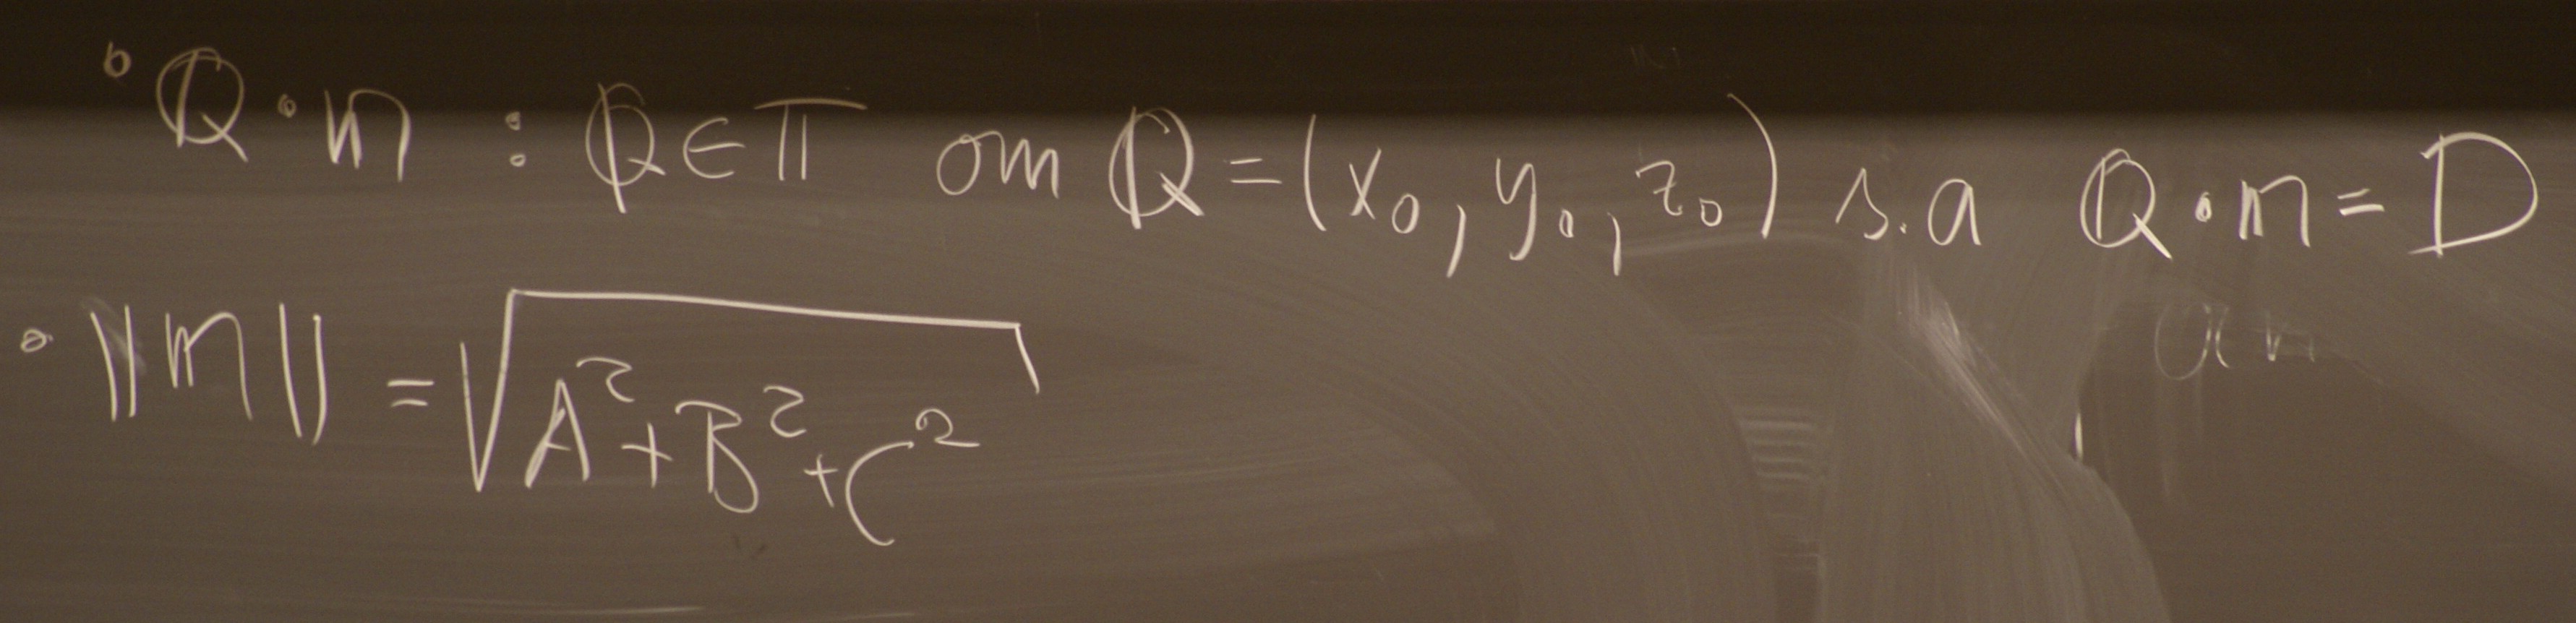 ° Q · n : Q ∈ π om Q = (x₀, y₀, z₀) s.a Q · n = D
° ||n|| = √(A² + B² + C²)